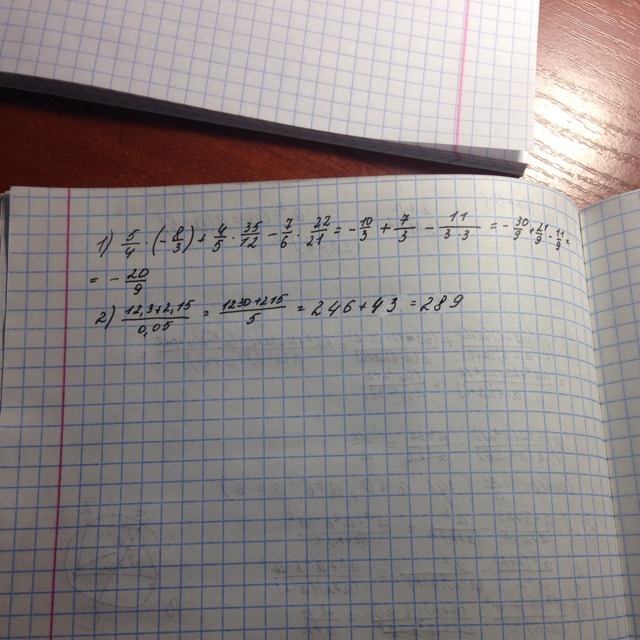 1) 5/4 · (-8/3) + 4/5 · 35/12 - 7/6 · 22/21 = -10/3 + 7/3 - 11/3·3 = -30/9 + 21/9 - 11/9 =
= - 20/9
2) 12,3+2,15/0,05 = 1230+215/5 = 246 + 43 = 289